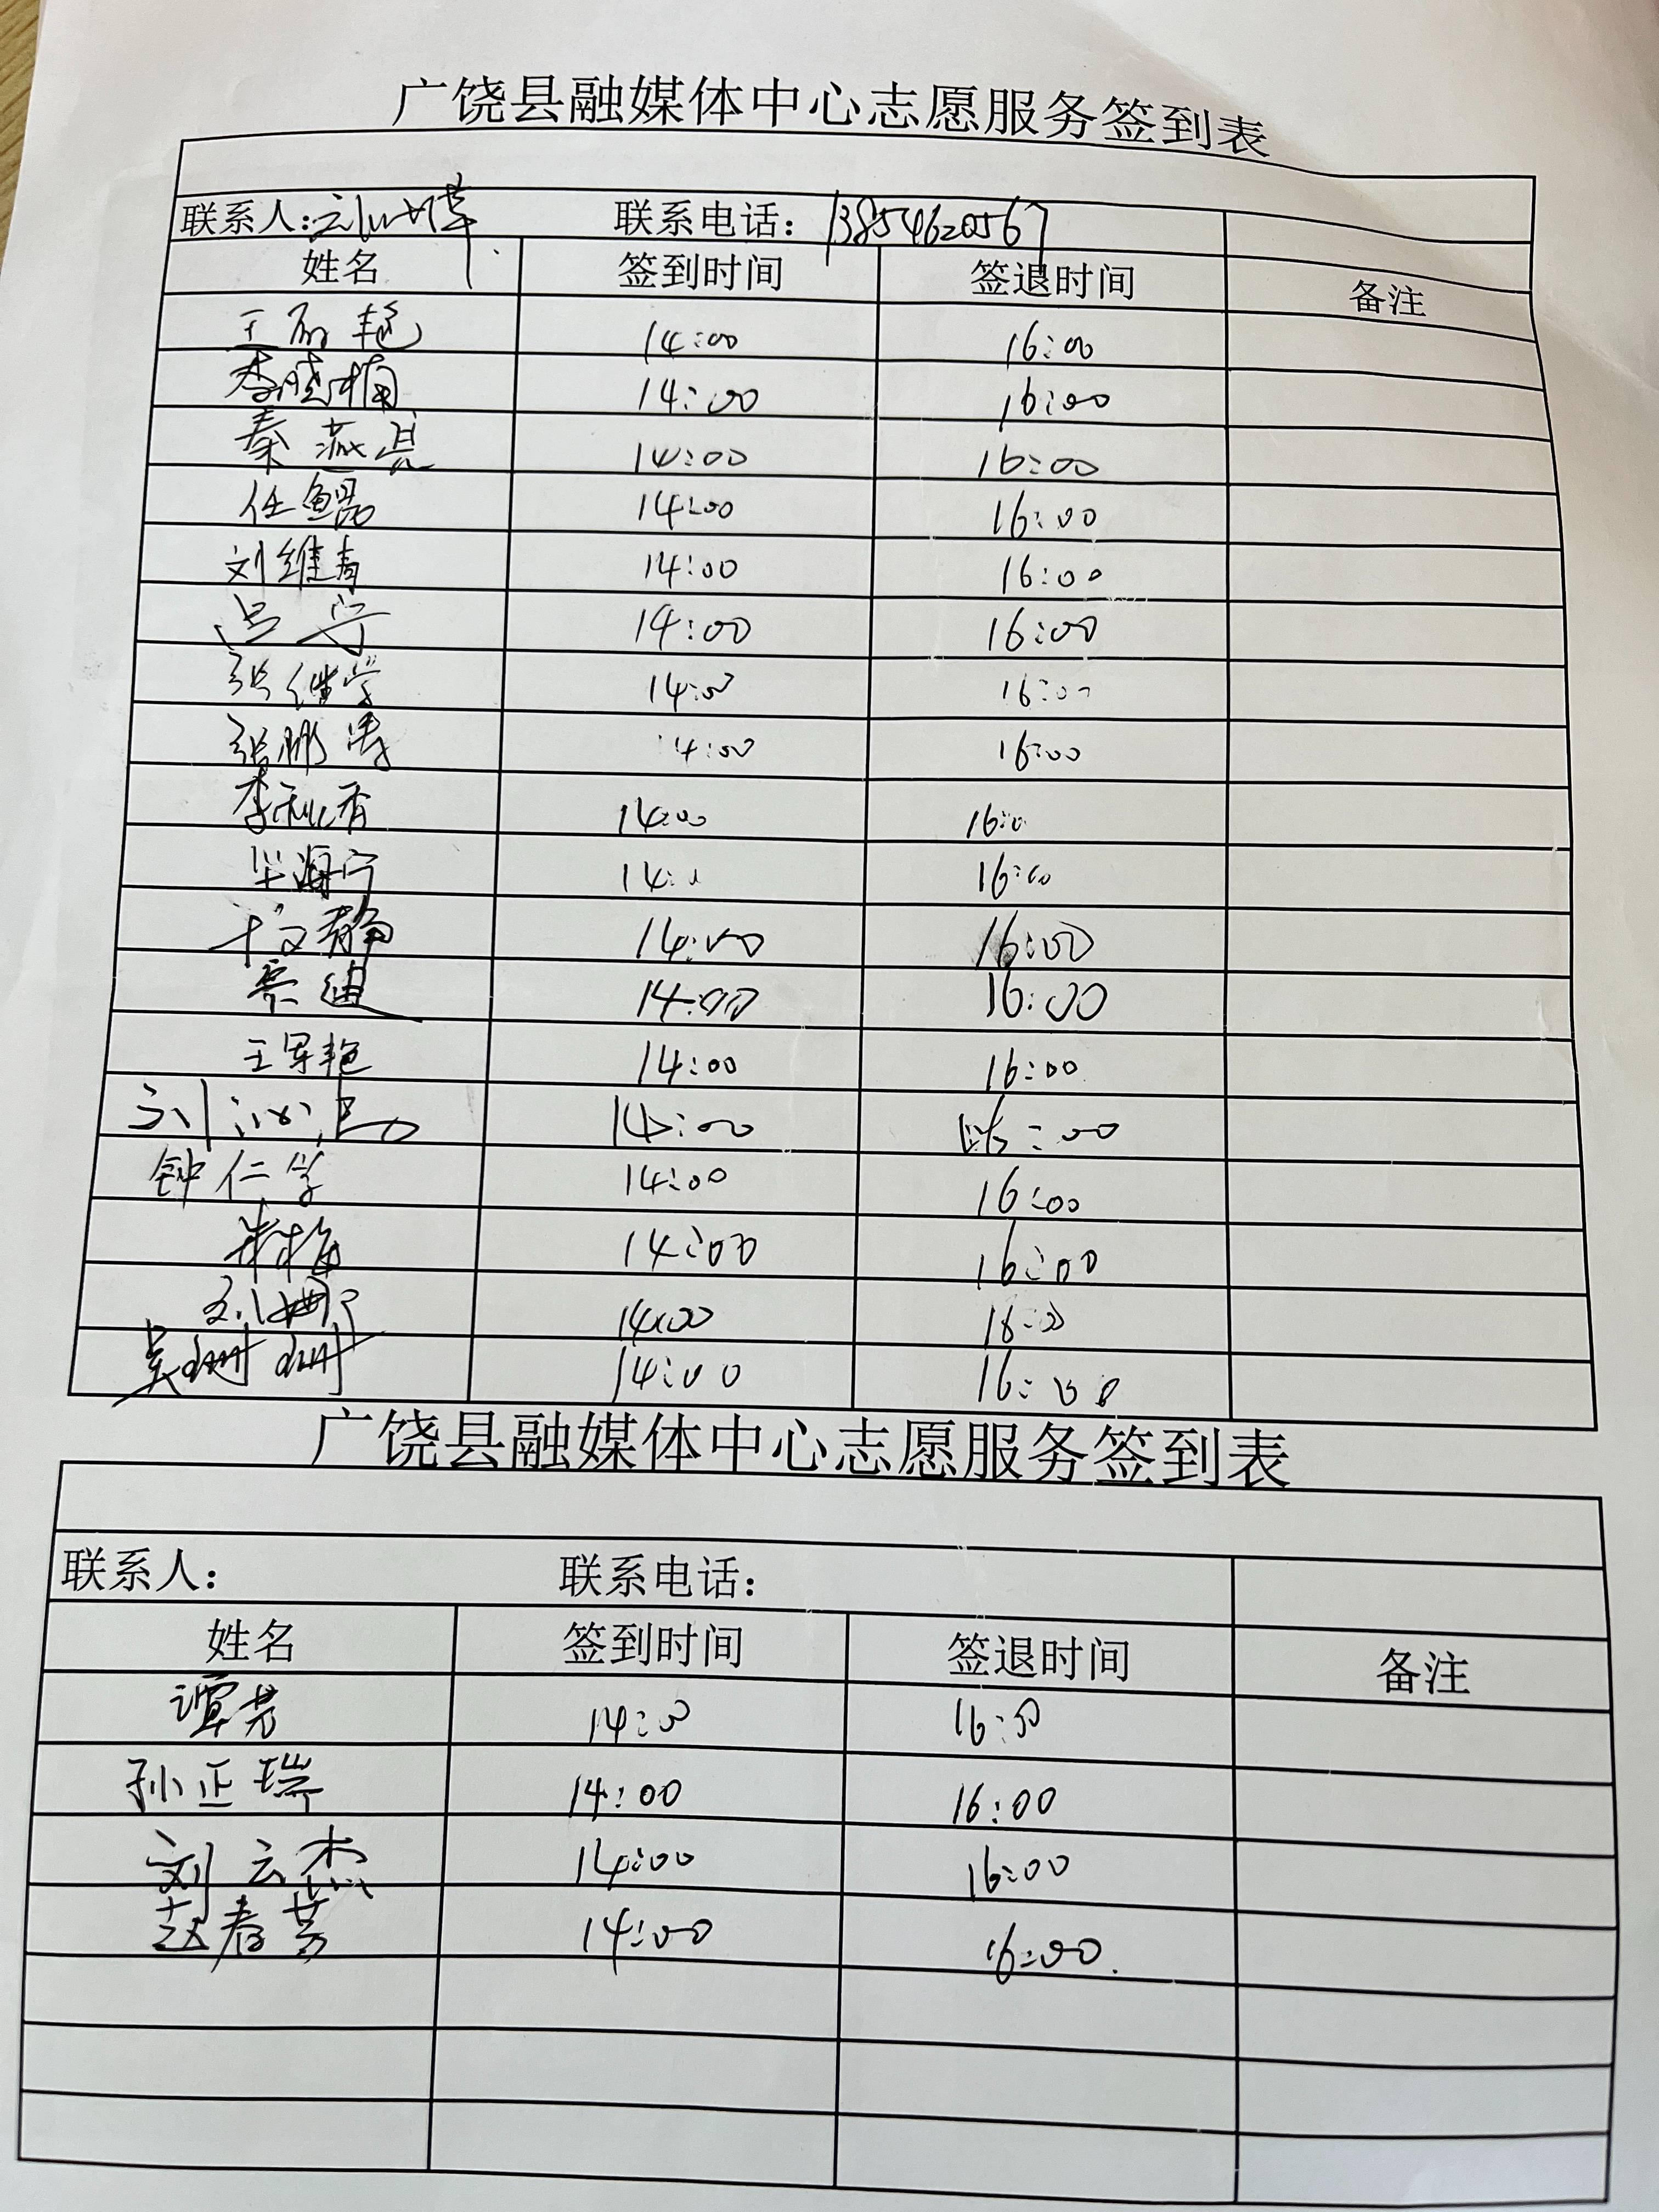 广饶县融媒体中心志愿服务签到表
联系人: 联系电话: 13854620567
姓名 签到时间 签退时间 备注
王丽艳 14:00 16:00
李晓楠 14:00 16:00
秦燕亮 14:00 16:00
任鲲 14:00 16:00
刘维春 14:00 16:00
吕宁 14:00 16:00
张继学 14:00 16:00
张鹏涛 14:00 16:00
李秋香 14:00 16:0
毕海宁 14: 16:00
文静 14:00 16:00
贾迪 14:00 16:00
王军艳 14:00 16:00
刘 14:00 16:00
钟仁学 14:00 16:00
朱梅 14:00 16:00
刘娜 14:00 16:00
吴珊珊 14:00 16:00
广饶县融媒体中心志愿服务签到表
联系人: 联系电话:
姓名 签到时间 签退时间 备注
谭芳 14:00 16:00
孙正瑞 14:00 16:00
刘云杰 14:00 16:00
赵春芳 14:00 16:00.